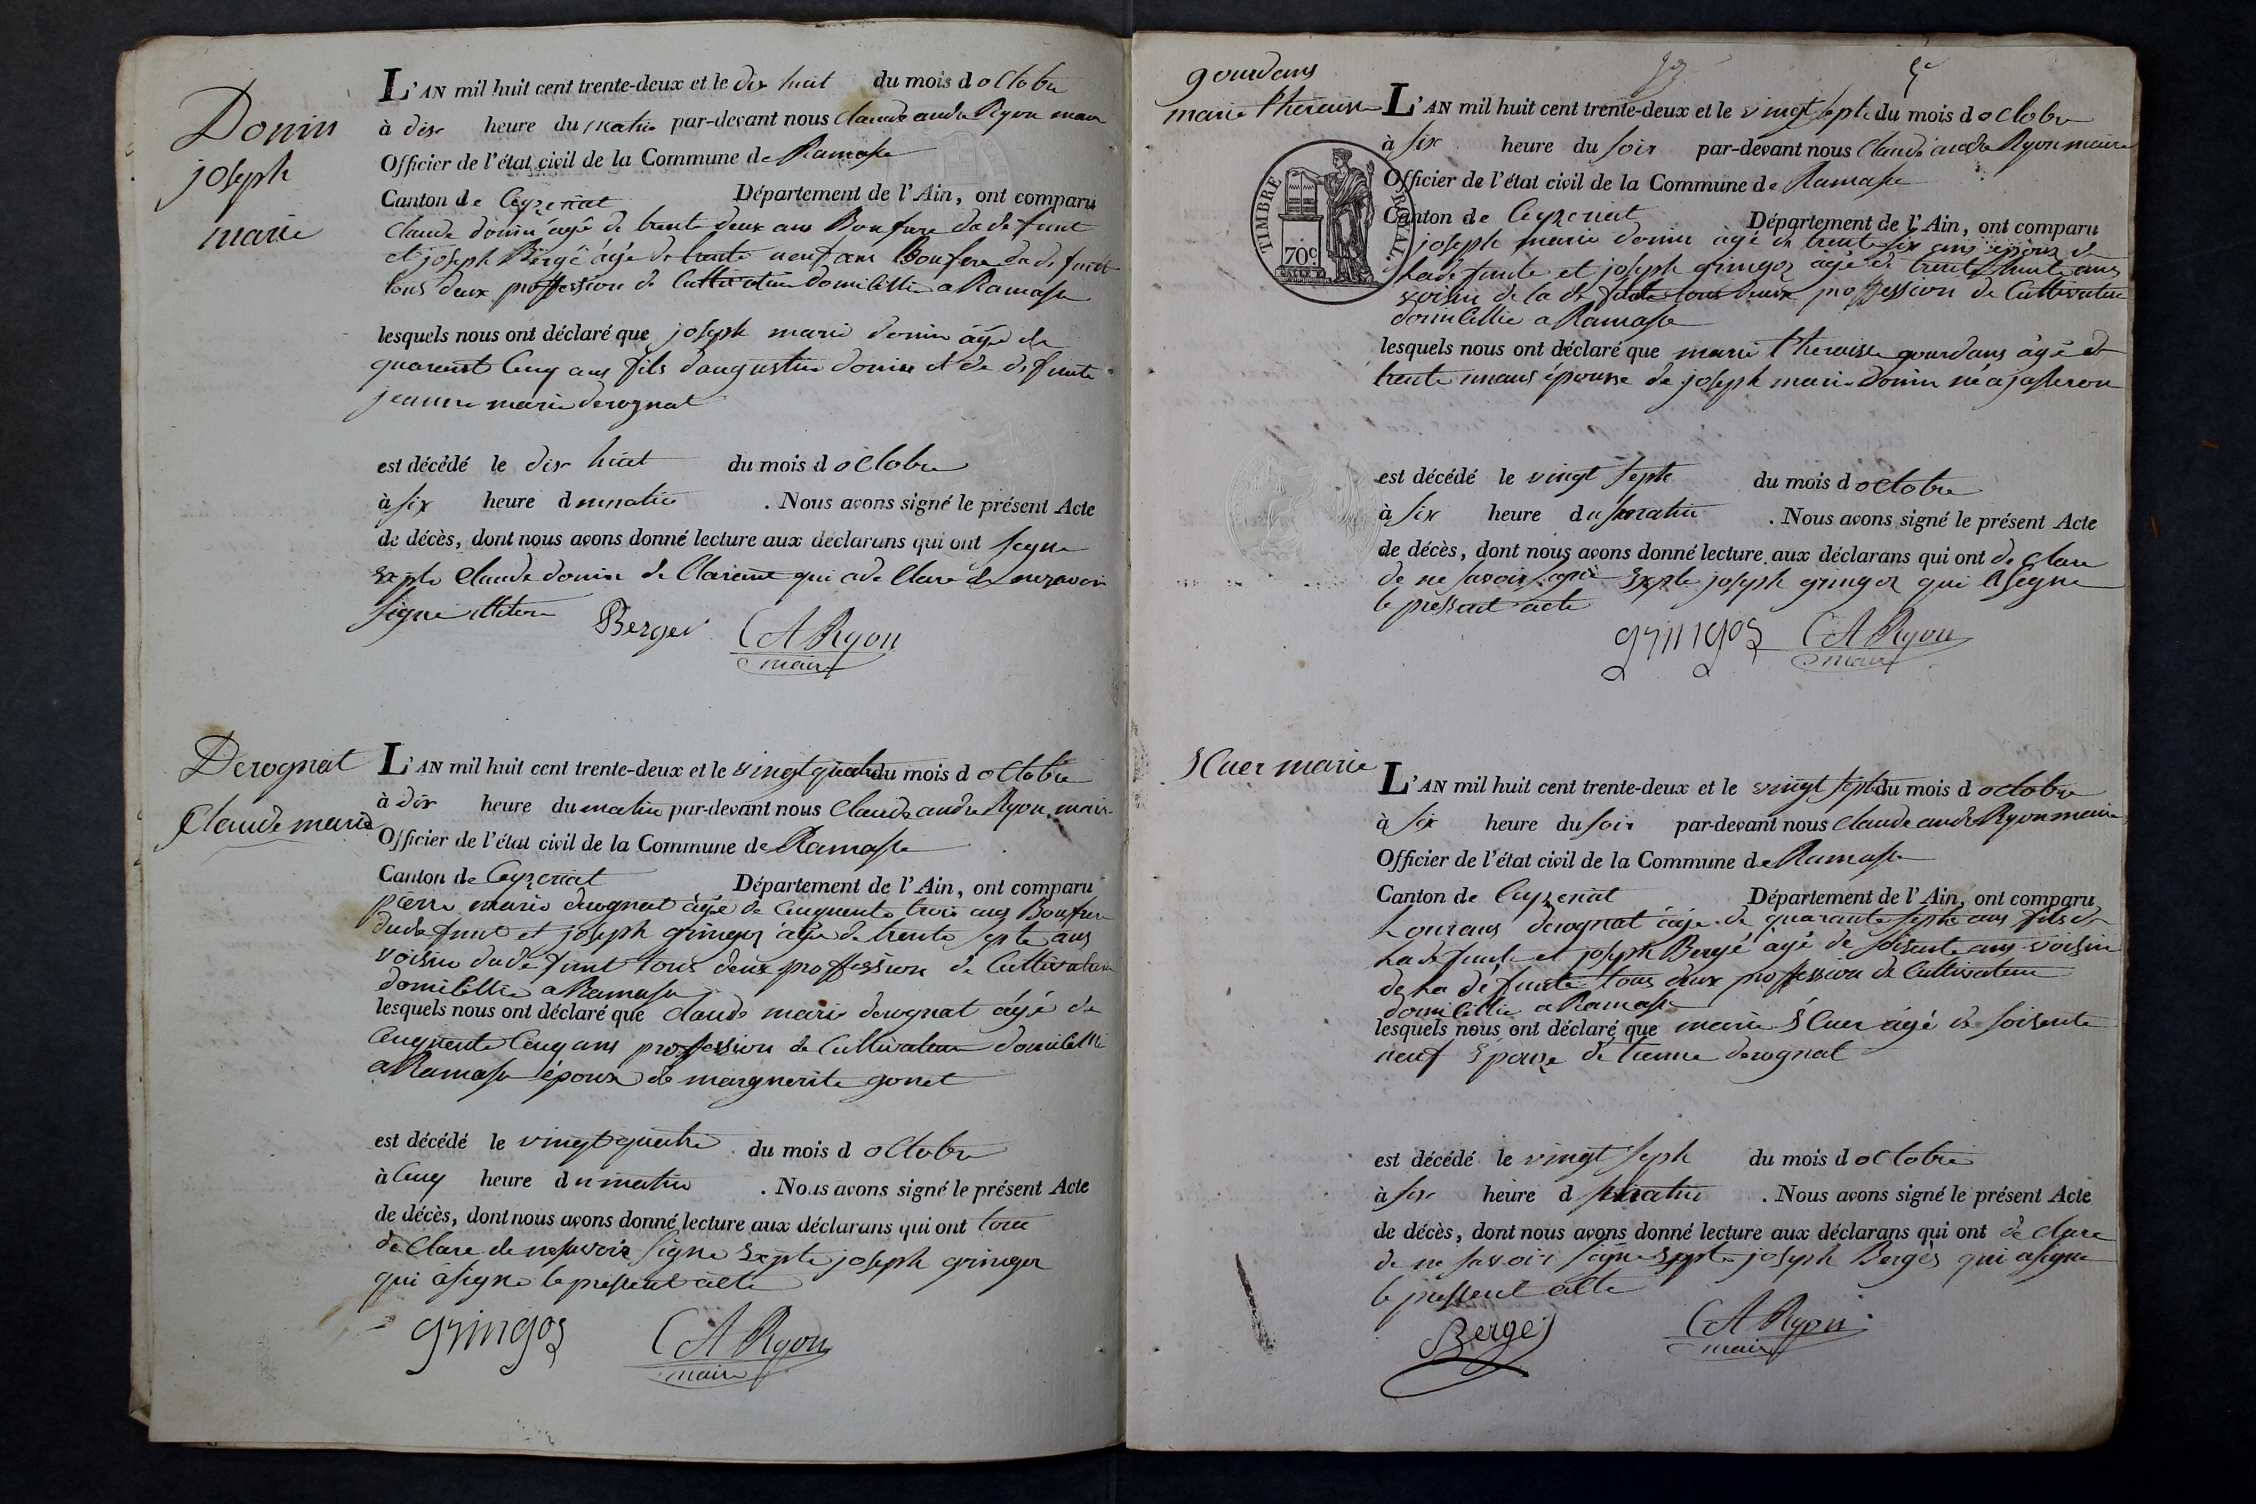 Donin
joseph
marie
L'AN mil huit cent trente-deux et le dix huit du mois d octobre
à dix heure du matin par-devant nous Claude andre Ryon maire
Officier de l'état civil de la Commune de Ramasse
Canton de Ceyzeriat Département de l'Ain, ont comparu
Claude donin âgé de trente deux ans Beaufrere du defunt
et joseph Bergé âgé de trente neuf ans Beaufrere du defunt
tous deux proffession de Cultivateur domicillié a Ramasse
lesquels nous ont déclaré que joseph marie donin âgé de
quarent Cinq ans fils d'augustin donin et de defunte
jeanne marie derognat
est décédé le dix huit du mois d octobre
à six heure du matin . Nous avons signé le présent Acte
de décès, dont nous avons donné lecture aux déclarans qui ont signe
exepte Claude donin de Clarent qui a de Clare de
signe Berger CA Ryon
maire
Derognat
Claude marie
L'AN mil huit cent trente-deux et le vingt quatre du mois d octobre
à dix heure du matin par-devant nous Claude andre Ryon maire
Officier de l'état civil de la Commune de Ramasse
Canton de Ceyzeriat Département de l'Ain, ont comparu
pierre marie derognat âgé de Cinquente trois ans Beaufrere
du defunt et joseph gringoz âgé de trente septe ans
voisin du defunt tous deux proffession de Cultivateur
domicillié a Ramasse
lesquels nous ont déclaré que Claude marie derognat âgé de
Cinquente Cinq ans proffession de Cultivateur domicillié
a Ramasse époux de marguerite gonet
est décédé le vingt quatre du mois d octobre
à Cinq heure du matin . Nous avons signé le présent Acte
de décès, dont nous avons donné lecture aux déclarans qui ont tous
de Clare de ne savoir signe exepte joseph gringoz
qui a signe le pressent acte
gringoz CA Ryon
maire
gourdans
marie theraise
L'AN mil huit cent trente-deux et le vingt septe du mois d octobre
à six heure du soir par-devant nous Claude andre Ryon maire
TIMBRE ROYAL
70c
Officier de l'état civil de la Commune de Ramasse
Canton de Ceyzeriat Département de l'Ain, ont comparu
joseph marie donin âgé de trente six ans époux de
la defunte et joseph gringoz âgé de trente huit ans
voisin de la defunte tous deux proffession de Cultivateur
domicillié a Ramasse
lesquels nous ont déclaré que marie theraise gourdans âgé de
trente un ans épouse de joseph marie donin né a jasseron
est décédé le vingt septe du mois d octobre
à six heure du matin . Nous avons signé le présent Acte
de décès, dont nous avons donné lecture aux déclarans qui ont de clare
de ne savoir signe exepte joseph gringoz qui a signe
le pressent acte
gringoz CA Ryon
maire
Cuer marie
L'AN mil huit cent trente-deux et le vingt septe du mois d octobre
à six heure du soir par-devant nous Claude andre Ryon maire
Officier de l'état civil de la Commune de Ramasse
Canton de Ceyzeriat Département de l'Ain, ont comparu
derognat âgé de quarante septe ans fils de
la defunte et joseph Bergé âgé de soisente ans voisin
de la defunte tous deux proffession de Cultivateur
domicillié a Ramasse
lesquels nous ont déclaré que marie Cuer âgé de soisente
neuf épouse de tienne derognat
est décédé le vingt septe du mois d octobre
à six heure d matin . Nous avons signé le présent Acte
de décès, dont nous avons donné lecture aux déclarans qui ont de clare
de ne savoir signe exepte joseph Berger qui a signe
le pressent acte
Berger CA Ryon
maire